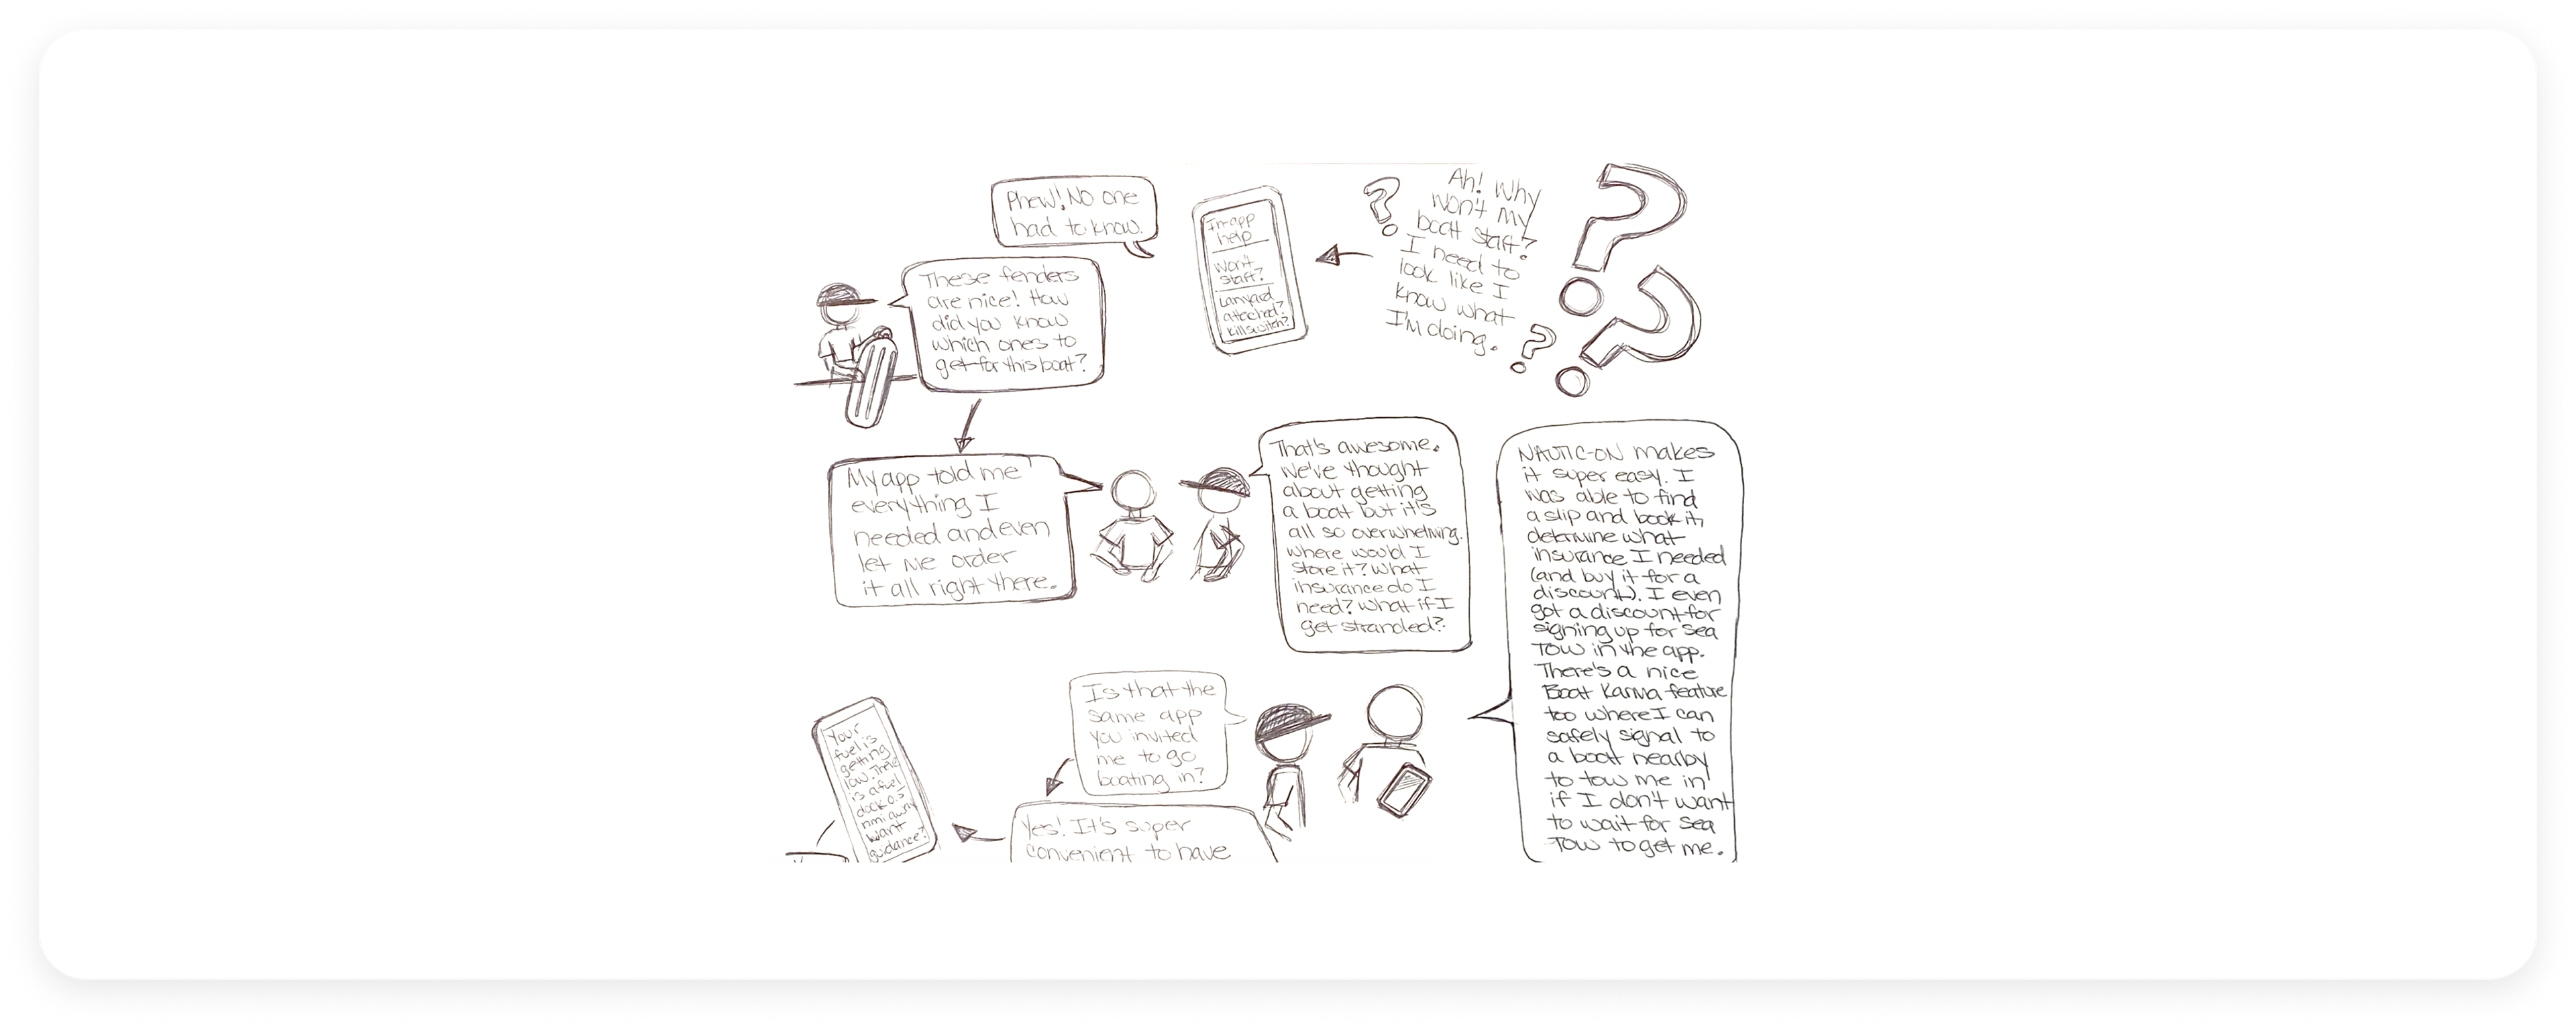 Ah! Why
won't my
boat start?
I need to
look like I
know what
I'm doing.
In-app
help
Won't
start?
Lanyard
attached?
Killswitch?
Phew! No one
had to know.
These fenders
are nice! How
did you know
which ones to
get for this boat?
My app told me
everything I
needed and even
let me order
it all right there.
That's awesome.
We've thought
about getting
a boat but it's
all so overwhelming.
Where would I
store it? What
insurance do I
need? What if I
get stranded?
NAUTIC-ON makes
it super easy. I
was able to find
a slip and book it,
determine what
insurance I needed
(and buy it for a
discount). I even
got a discount for
signing up for Sea
Tow in the app.
There's a nice
Boat Karma feature
too where I can
safely signal to
a boat nearby
to tow me in
if I don't want
to wait for Sea
Tow to get me.
Is that the
same app
you invited
me to go
boating in?
Yes! It's super
convenient to have
Your
fuel is
getting
low. There
is a fuel
dock 0.5
nmi away
want
guidance?